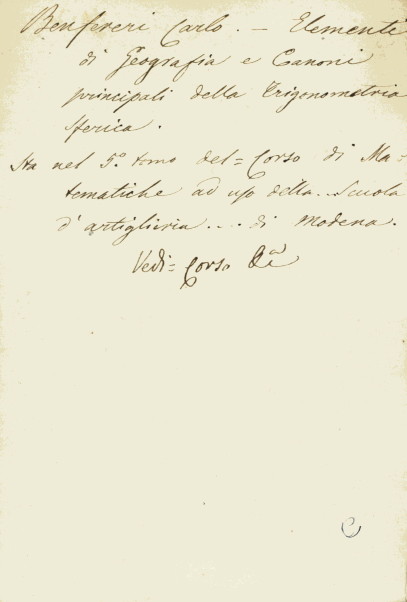 Benfereri Carlo. — Elementi
di Geografia e Canoni
principali della Trigonometria
sferica.
Sta nel 5.º tomo del = Corso di Ma-
tematiche ad uso della... Scuola
d'artiglieria.... di Modena.
Vedi = Corso
C